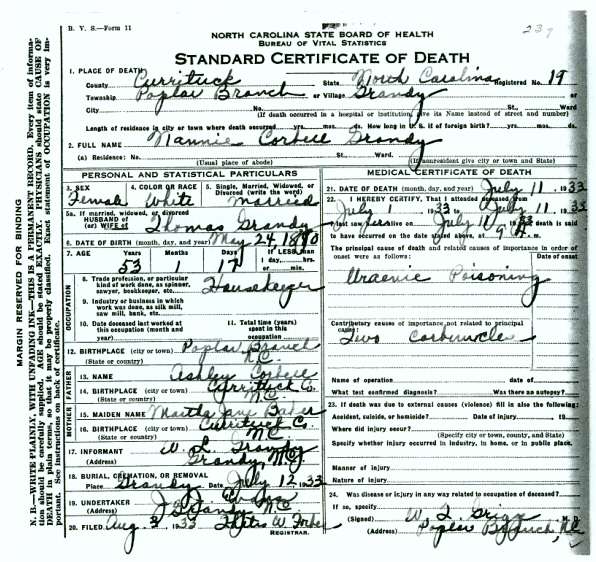 B. V. S.—Form 11
237
NORTH CAROLINA STATE BOARD OF HEALTH
BUREAU OF VITAL STATISTICS
STANDARD CERTIFICATE OF DEATH
1. PLACE OF DEATH
County Currituck State North Carolina Registered No. 19
Township Poplar Branch or Village Grandy
City No. St., Ward
(If death occurred in a hospital or institution, give its Name instead of street and number)
Length of residence in city or town where death occurred yrs. mos. ds. How long in U. S. if of foreign birth? yrs. mos. ds.
2. FULL NAME Nannie Corbell Grandy
(a) Residence: No. St. Ward.
(Usual place of abode) (If nonresident give city or town and State)
PERSONAL AND STATISTICAL PARTICULARS
3. SEX Female
4. COLOR OR RACE White
5. Single, Married, Widowed, or Divorced (write the word) Married
5a. If married, widowed, or divorced
HUSBAND of
(or) WIFE of Thomas Grandy
6. DATE OF BIRTH (month, day, and year) May 24, 1880
7. AGE Years Months Days If LESS than
53 1 17 1 day, hrs.
or min.
OCCUPATION
8. Trade, profession, or particular
kind of work done, as spinner,
sawyer, bookkeeper, etc. Housekeeper
9. Industry or business in which
work was done, as silk mill,
saw mill, bank, etc.
10. Date deceased last worked at
this occupation (month and
year)
11. Total time (years)
spent in this
occupation
12. BIRTHPLACE (city or town) Poplar Branch
(State or country) N.C.
FATHER
13. NAME Ashley Corbell
14. BIRTHPLACE (city or town) Currituck Co.
(State or country) N.C.
MOTHER
15. MAIDEN NAME Martha Jane Baxter
16. BIRTHPLACE (city or town) Currituck Co.
(State or country) N.C.
17. INFORMANT W. L. Grandy
(Address) Grandy, N.C.
18. BURIAL, CREMATION, OR REMOVAL
Place Grandy Date July 12 1933
19. UNDERTAKER
(Address) Grandy N.C.
20. FILED Aug 3 1933 W. Forbes
REGISTRAR.
MEDICAL CERTIFICATE OF DEATH
21. DATE OF DEATH (month, day, and year) July 11, 1933
22. I HEREBY CERTIFY, That I attended deceased from
July 1 1933 to July 11, 1933
I last saw her alive on July 11, 1933 death is said
to have occurred on the date stated above, at 9 A.m.
The principal cause of death and related causes of importance in order
of onset were as follows: Date of onset
Uraenic Poisoning
Contributory causes of importance not related to principal
cause:
Two Carbuncles
Name of operation date of
What test confirmed diagnosis? Was there an autopsy?
23. If death was due to external causes (violence) fill in also the following:
Accident, suicide, or homicide? Date of injury 19
Where did injury occur?
(Specify city or town, county, and State)
Specify whether injury occurred in industry, in home, or in public place.
Manner of injury
Nature of injury
24. Was disease or injury in any way related to occupation of deceased?
If so, specify
(Signed) W. T. Griggs
(Address) Poplar Branch, N.C.
MARGIN RESERVED FOR BINDING
N. B.—WRITE PLAINLY, WITH UNFADING INK—THIS IS A PERMANENT RECORD. Every item of information should be carefully supplied. AGE should be stated EXACTLY. PHYSICIANS should state CAUSE OF DEATH in plain terms, so that it may be properly classified. Exact statement of OCCUPATION is very important. See instructions on back of certificate.